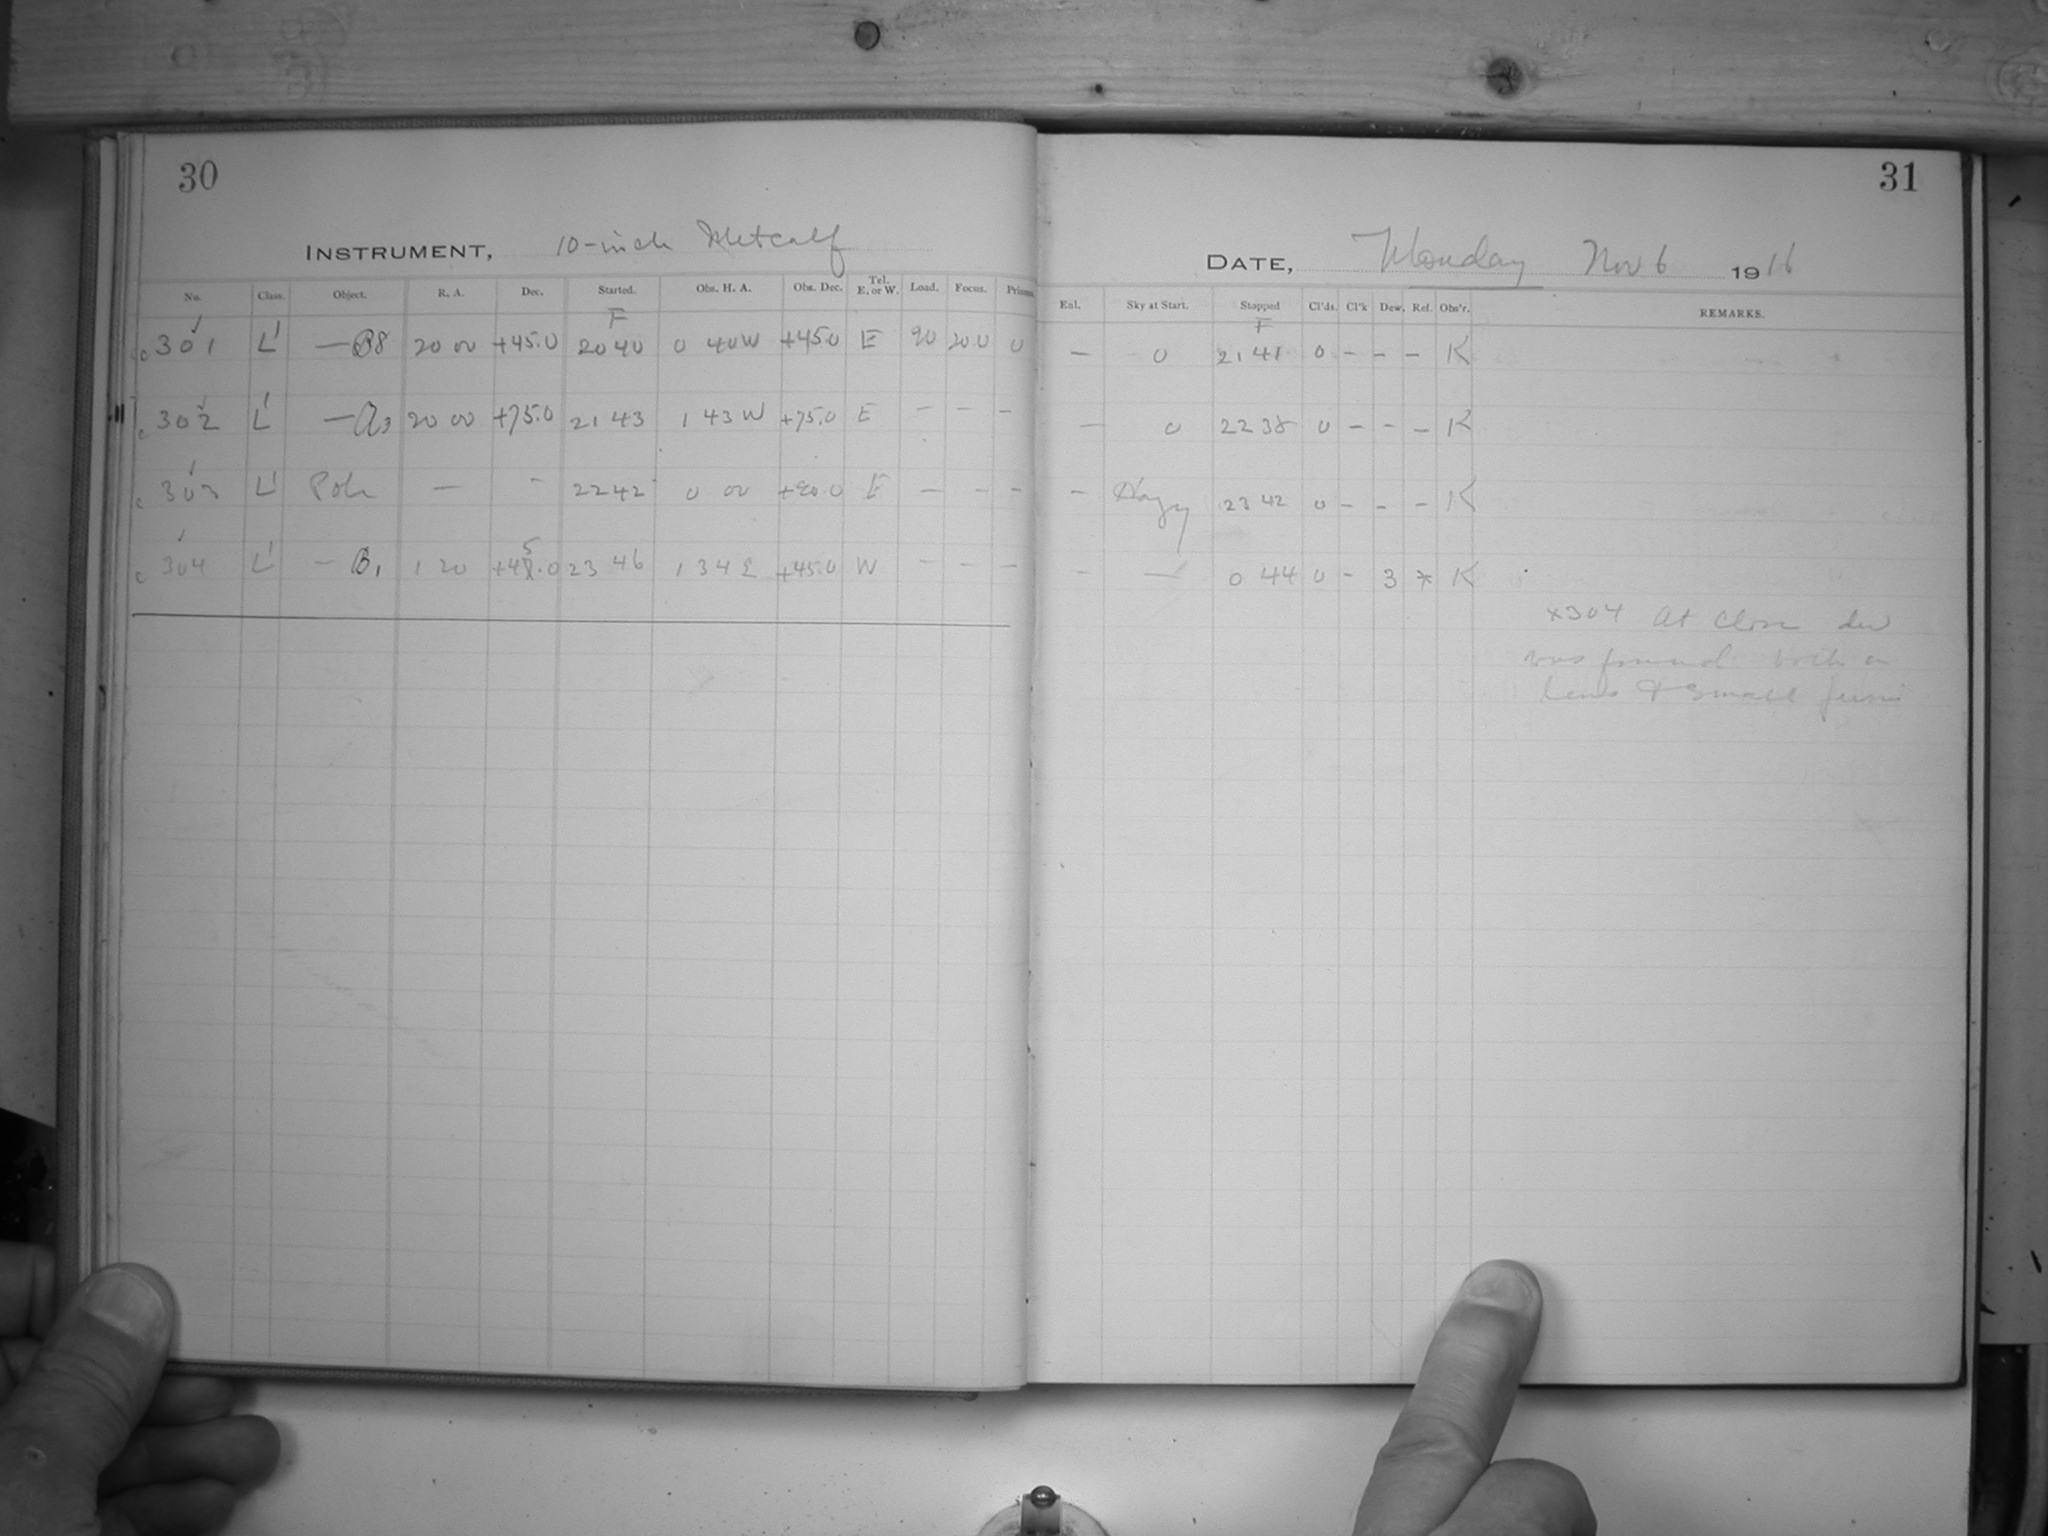 30
31
INSTRUMENT, 10-inch Metcalf
DATE, Monday Nov 6 1916
No. Class. Object. R. A. Dec. Started. Obs. H. A. Obs. Dec. Tel. E. or W. Load. Focus. Prisms
Enl. Sky at Start. Stopped Cl'ds. Cl'k Dew. Ref. Obs'r. REMARKS.
F
F
c 301 L' — B8 20 00 +45.0 20 40 0 40W +45.0 E 90 20.0 0 — 0 21 41 0 - - - K
c 302 L' — A3 20 00 +75.0 21 43 1 43 W +75.0 E - - - — 0 22 38 0 - - - K
c 303 L' Pole — - 22 42 0 00 +90.0 E - - - - Hazy 23 42 0 - - - K
5
c 304 L' - B1 1 20 +48.0 23 46 1 34 E +45.0 W - - - - — 0 44 0 - 3 * K
x304 At close dew
was found both on
lens & small